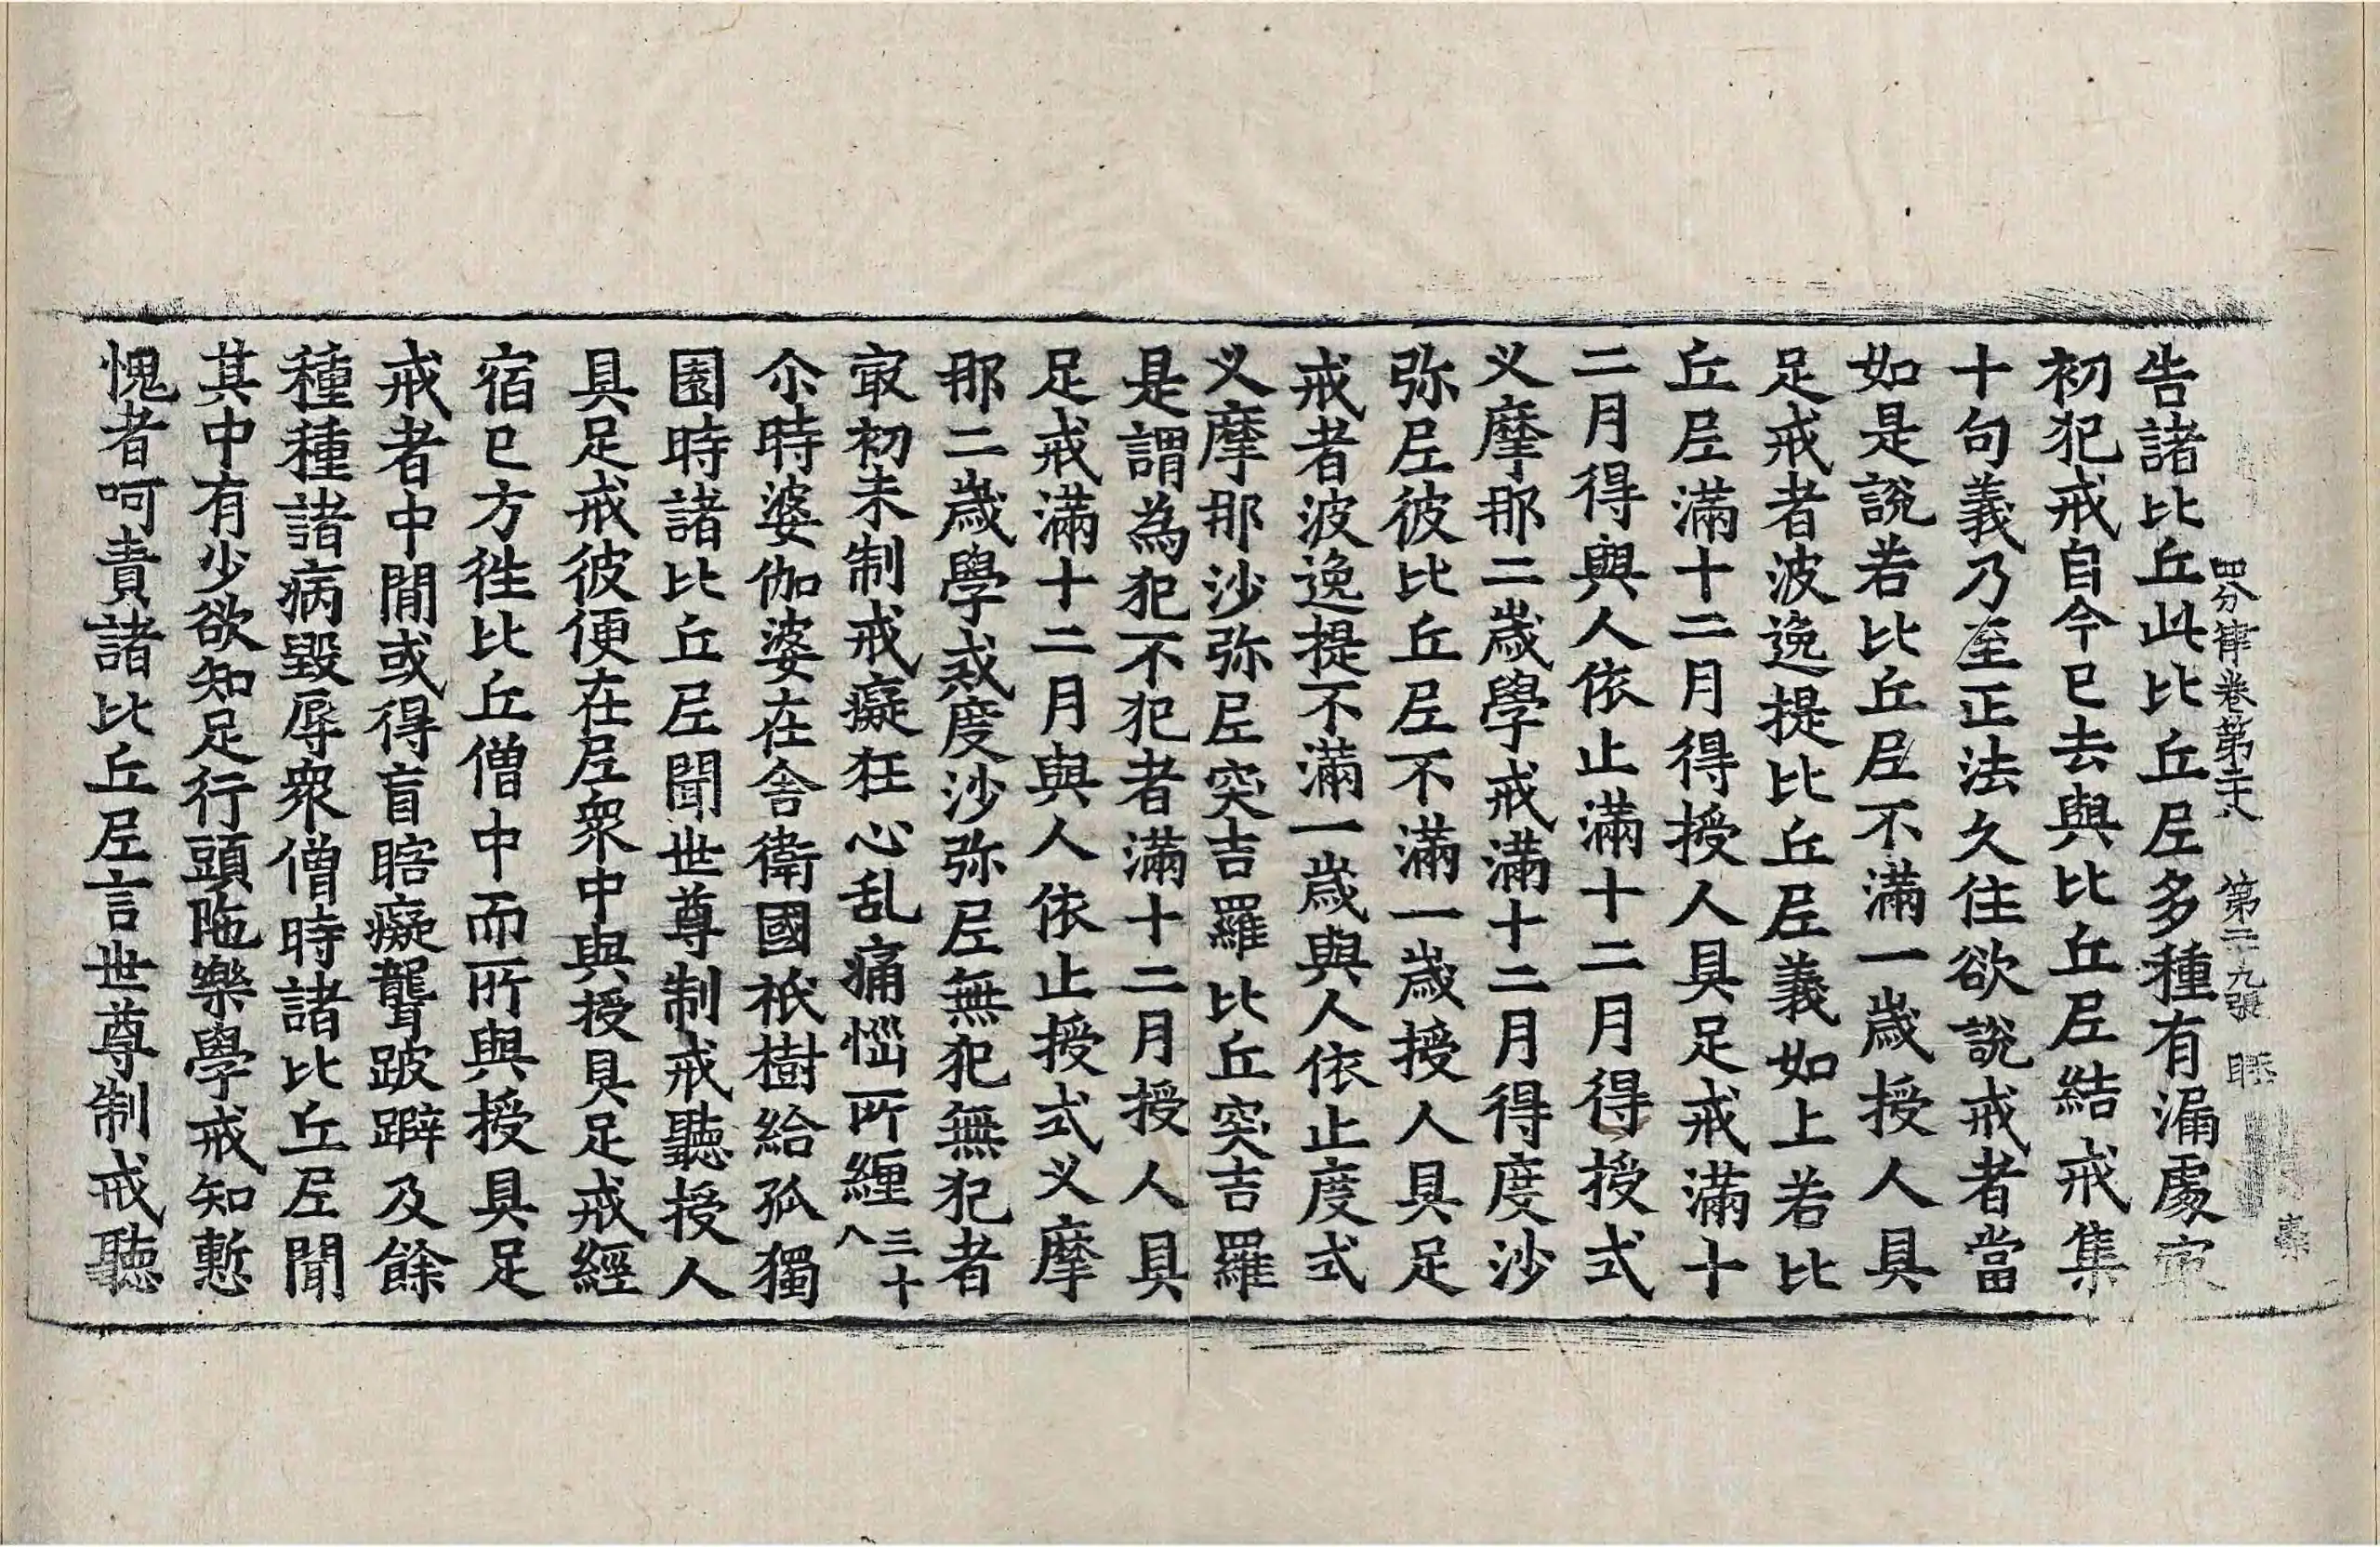 四分律卷第二十八　第二十九張
告諸比丘此比丘尼多種有漏處㝡
初犯戒自今已去與比丘尼結戒集
十句義乃至正法久住欲說戒者當
如是說若比丘尼不滿一歲授人具
足戒者波逸提比丘尼義如上若比
丘尼滿十二月得授人具足戒滿十
二月得與人依止滿十二月得授式
叉摩那二歲學戒滿十二月得度沙
弥尼彼比丘尼不滿一歲授人具足
戒者波逸提不滿一歲與人依止度式
叉摩那沙弥尼突吉羅比丘突吉羅
是謂為犯不犯者滿十二月授人具
足戒滿十二月與人依止授式叉摩
那二歲學戒度沙弥尼無犯無犯者
㝡初未制戒癡狂心乱痛惱所纏三十八
尒時婆伽婆在舍衛國祇樹給孤獨
園時諸比丘尼聞世尊制戒聽授人
具足戒彼便在尼衆中與授具足戒經
宿已方徃比丘僧中而所與授具足
戒者中閒或得盲瞎癡聾跛躃及餘
種種諸病毀辱衆僧時諸比丘尼聞
其中有少欲知足行頭陁樂學戒知慙
愧者呵責諸比丘尼言世尊制戒聽